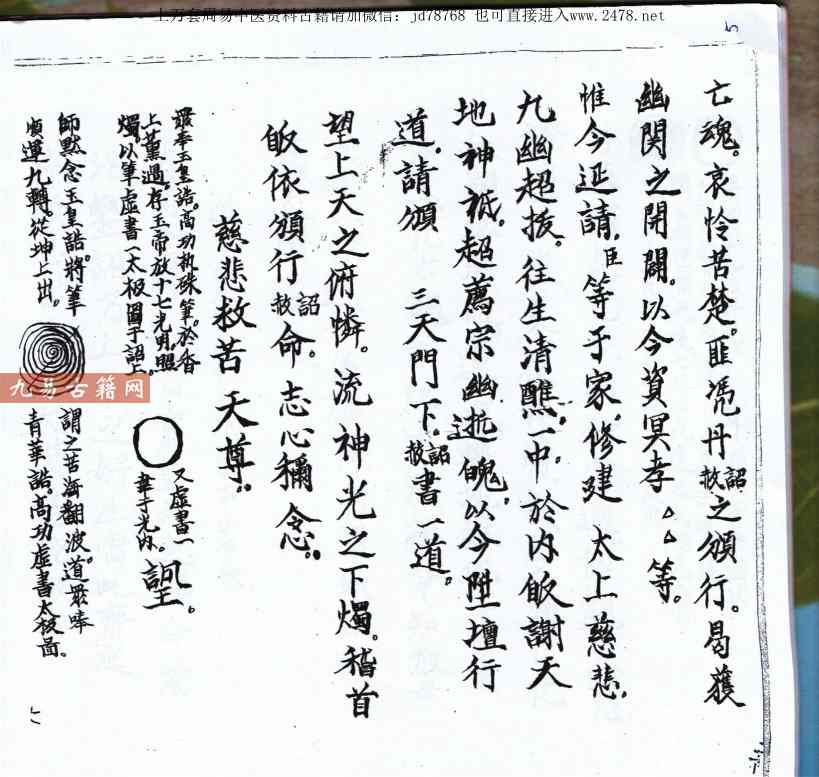 上万套周易中医资料古籍请加微信：jd78768 也可直接进入www.2478.net
5
亡魂。哀怜苦楚。匪凴丹詔赦之頒行。曷獲
幽関之開闢。以今資冥孝厶厶等。
惟今延請。臣等于家。修建 太上慈悲
九幽超拔。往生清醮一中。於内皈謝天
地神祇。超薦宗幽魂。以今陞壇行
道。請頒 三天門下。詔赦書一道。
望上天之俯憐。流神光之下燭。稽首
皈依頒行詔赦命。志心稱念。
慈悲救苦天尊。
眾奉玉皇誥。高功執硃筆。於香
上薰過。存玉帝放十七光明照
燭。以筆虛書太极圖于詔上。
又虛書一
于光内。
師默念玉皇誥。將筆
順運九轉。從坤上出。
謂之苦海翻波。道眾奉
青華誥。高功虛書太极啚。
九易古籍网